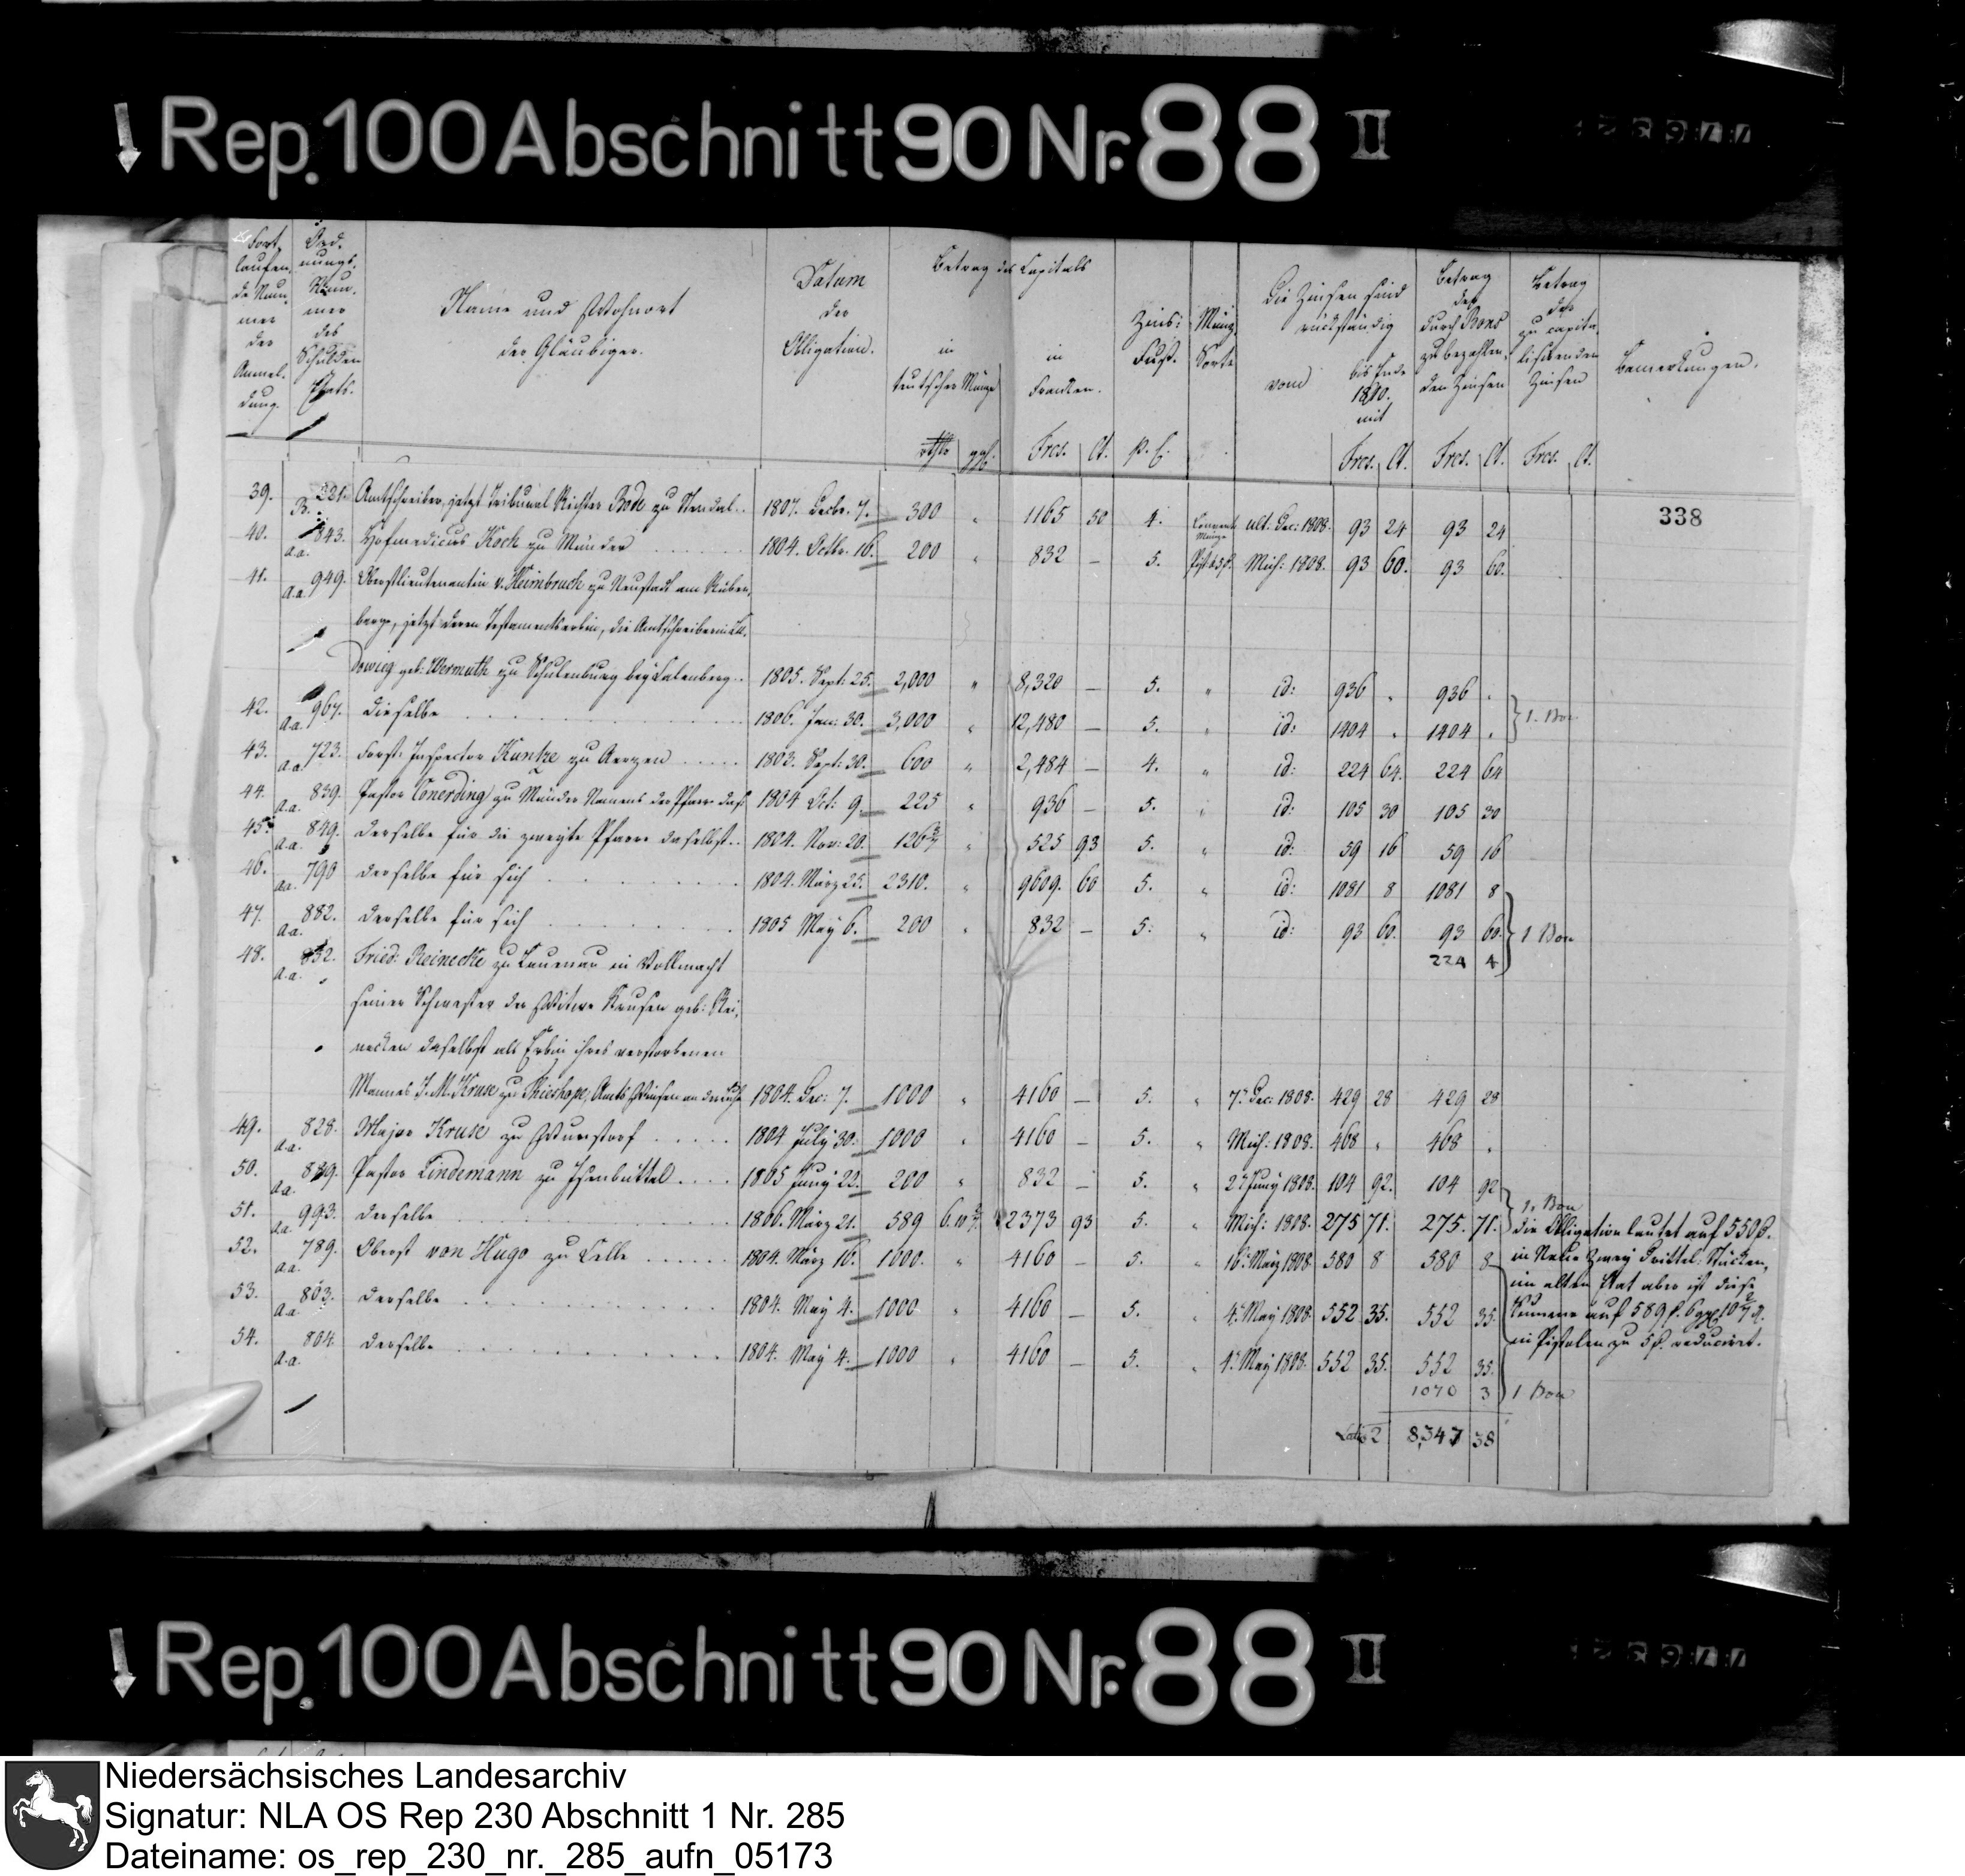 Rep. 100 Abschnitt 90 Nr. 88 II
Fort- laufen- de Num- mer der Anmel- dung.
Ord- nungs- Num- mer des Schulden Etats.
Name und Wohnort der Gläubiger.
Datum der Obligation.
Betrag des Capitals
in teutscher Münze
in Franken.
Zins: Fuß.
Münz Sorte
Die Zinsen sind rückständig
vom
bis Ende 1810. mit
Betrag der durch Bons zu bezahlen- den Zinsen
Betrag der zu capita- lisirenden Zinsen
Bemerkungen.
rthlr ggl. Frcs. Ct. p. C. Frcs. Ct. Frcs. Ct. Frcs. Ct.
338
39. B. 221. Amtschreiber, jetzt Tribunal Richter Bode zu Stendal.. 1807. Decbr. 7. 300 " 1165 50 4. Convent. Münze ult. Dec: 1808. 93 24 93 24
40. aa. 843. Hofmedicus Koch zu Münder 1804. Octbr. 16. 200 " 832 – 5. Pist. à 5 f. Mich: 1808. 93 60. 93 60.
41. aa. 949. Oberstlieutenantin v. Heimbruch zu Neustadt am Rüben-
berge, jetzt deren Testamentserbin, die Amtschreiberin Lu-
dowieg geb: Wermuth zu Schulenburg bey Calenberg.. 1805. Sept: 25. 2,000 " 8,320 – 5. " id: 936 . 936 .
42. aa. 967. Dieselbe 1806. Jan: 30. 3,000 " 12,480 – 5. " id: 1404 . 1404 . 1. Bon
43. aa. 723. Forst: Inspector Kuntze zu Aerzen 1803. Sept: 30. 600 " 2,484 – 4. " id: 224 64. 224 64
44. aa. 839. Pastor Conerding zu Münder Namens der Pfarre das. 1804 Oct: 9. 225 " 936 – 5. " id: 105 30 105 30
45. aa. 849. Derselbe für die zweyte Pfarre daselbst.. 1804. Nov: 20. 126 3/7 " 525 93 5. " id: 59 16 59 16
46. aa. 790 Derselbe für sich 1804. März 25. 2310. " 9609. 60 5. " id: 1081 8 1081 8
47. aa. 882. Derselbe für sich 1805 May 6. 200 " 832 – 5: " id: 93 60. 93 60. 1 Bon
224 4
48. aa. 832. Fried: Reinecke zu Lauenau in Vollmacht
seiner Schwester der Witwe Krusen geb: Rei-
necken daselbst als Erbin ihres verstorbenen
Mannes J. M. Kruse zu Thieshope, Amts Winsen an der Luhe 1804. Dec: 7. 1000 " 4160 – 5. " 7. Dec: 1808. 429 28 429 28
49. aa. 828. Major Kruse zu Wunstorf 1804 July 30. 1000 " 4160 – 5. " Mich: 1808. 468 . 468 .
50. aa. 889. Pastor Lindemann zu Isenbüttel 1805 Juny 22. 200 " 832 – 5. " 22 Juny 1808. 104 92. 104 92
51. aa. 993. Derselbe 1806. März 21. 589 6. 10 2/7 2373 93 5. " Mich: 1808. 275 71. 275. 71. 1. Bon
52. aa. 789. Oberst von Hugo zu Celle 1804. März 16. 1000. " 4160 – 5. " 16. März 1808 580 8 580 8
53. aa. 803. Derselbe 1804. May 4. 1000 " 4160 – 5. " 4. May 1808. 552 35. 552 35.
54. aa. 804 Derselbe 1804. May 4. 1000 " 4160 – 5. " 4. May 1808. 552 35. 552 35.
1070 3 1 Bon
die Obligation lautet auf 550 f.
in Neue Zwey Drittel: Stücken,
im alten Etat aber ist diese
Summe auf 589 f. 6 ggl 10 2/7 d.
in Pistolen zu 5 f. reducirt.
Latus 2 8,347 38
Rep. 100 Abschnitt 90 Nr. 88 II
Niedersächsisches Landesarchiv
Signatur: NLA OS Rep 230 Abschnitt 1 Nr. 285
Dateiname: os_rep_230_nr._285_aufn_05173